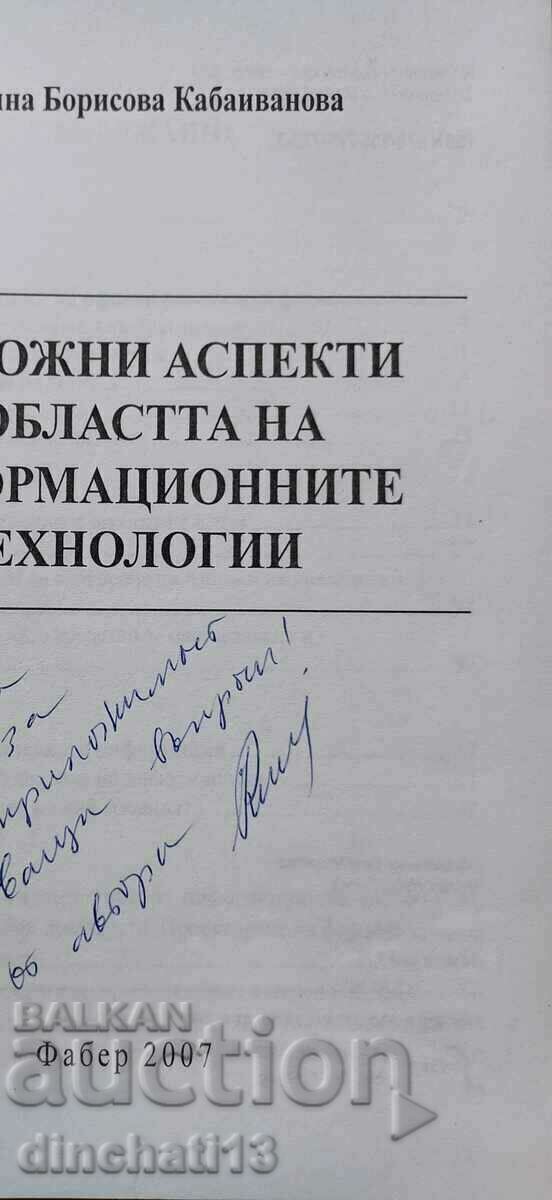 ина Борисова Кабаиванова
ОЖНИ АСПЕКТИ
ОБЛАСТТА НА
ОРМАЦИОННИТЕ
ЕХНОЛОГИИ
за
приложимост
ващи въпроси!
от автора
BALKAN
Фабер 2007
auction
dinchati13